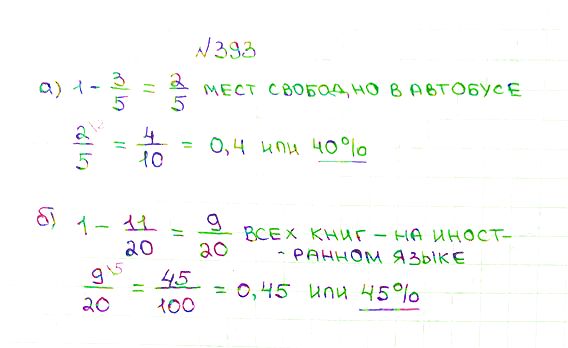 №393
а) 1 - 3/5 = 2/5 МЕСТ СВОБОДНО В АВТОБУСЕ
2/5 \2 = 4/10 = 0,4 ИЛИ 40%
б) 1 - 11/20 = 9/20 ВСЕХ КНИГ - НА ИНОСТ-
- РАННОМ ЯЗЫКЕ
9/20 \5 = 45/100 = 0,45 ИЛИ 45%